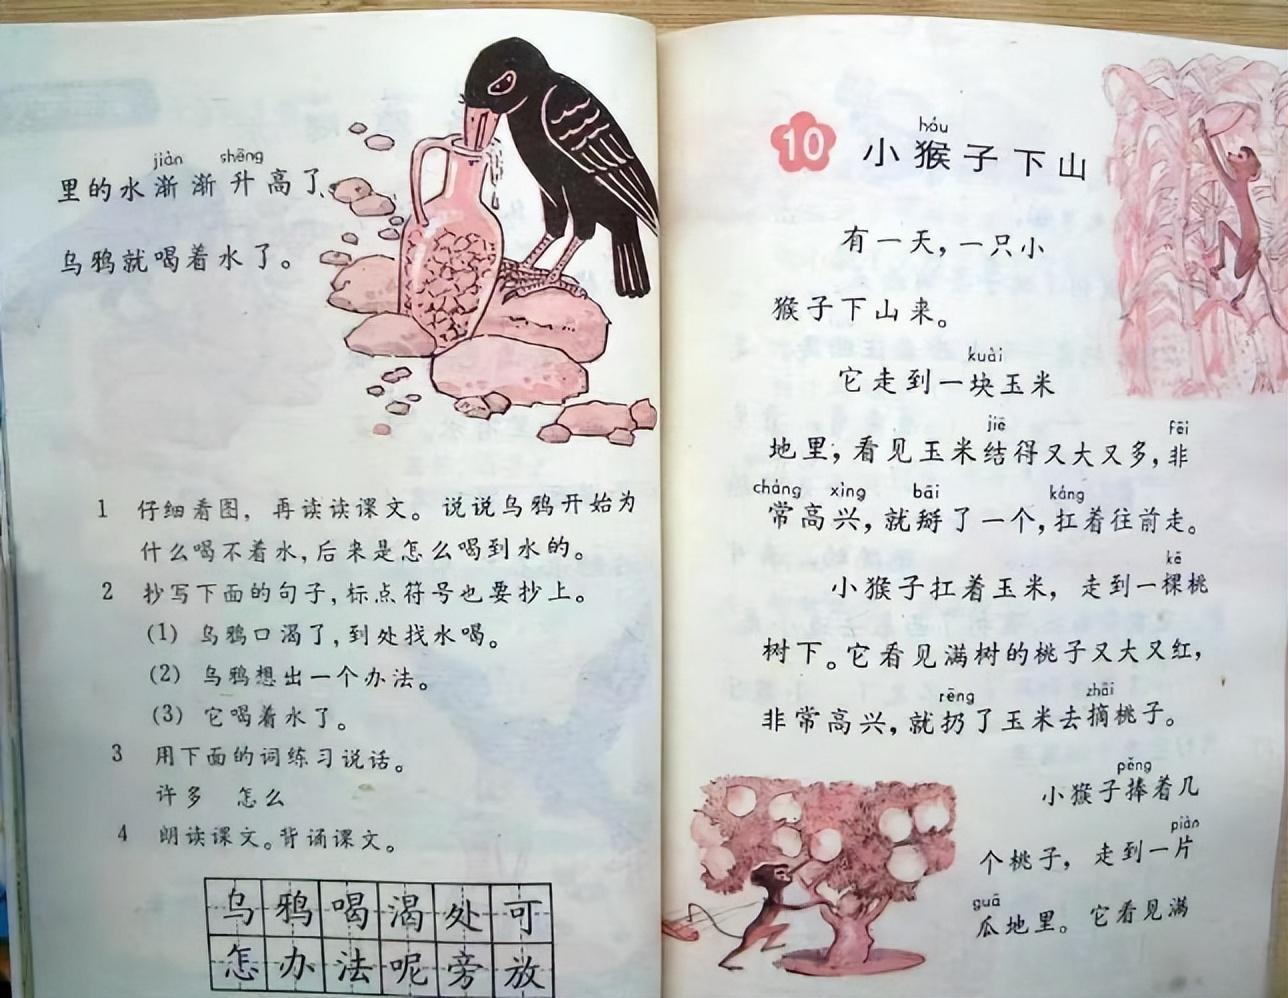 jiàn shēng
里的水渐渐升高了,
乌鸦就喝着水了。
1 仔细看图,再读读课文。说说乌鸦开始为
什么喝不着水,后来是怎么喝到水的。
2 抄写下面的句子,标点符号也要抄上。
(1) 乌鸦口渴了,到处找水喝。
(2) 乌鸦想出一个办法。
(3) 它喝着水了。
3 用下面的词练习说话。
许多 怎么
4 朗读课文。背诵课文。
乌鸦喝渴处可
怎办法呢旁放
hóu
10 小猴子下山
有一天,一只小
猴子下山来。
kuài
它走到一块玉米
jiē fēi
地里,看见玉米结得又大又多,非
cháng xìng bāi káng
常高兴,就掰了一个,扛着往前走。
kē
小猴子扛着玉米,走到一棵桃
树下。它看见满树的桃子又大又红,
rēng zhāi
非常高兴,就扔了玉米去摘桃子。
pěng
小猴子捧着几
piàn
个桃子,走到一片
guā
瓜地里。它看见满